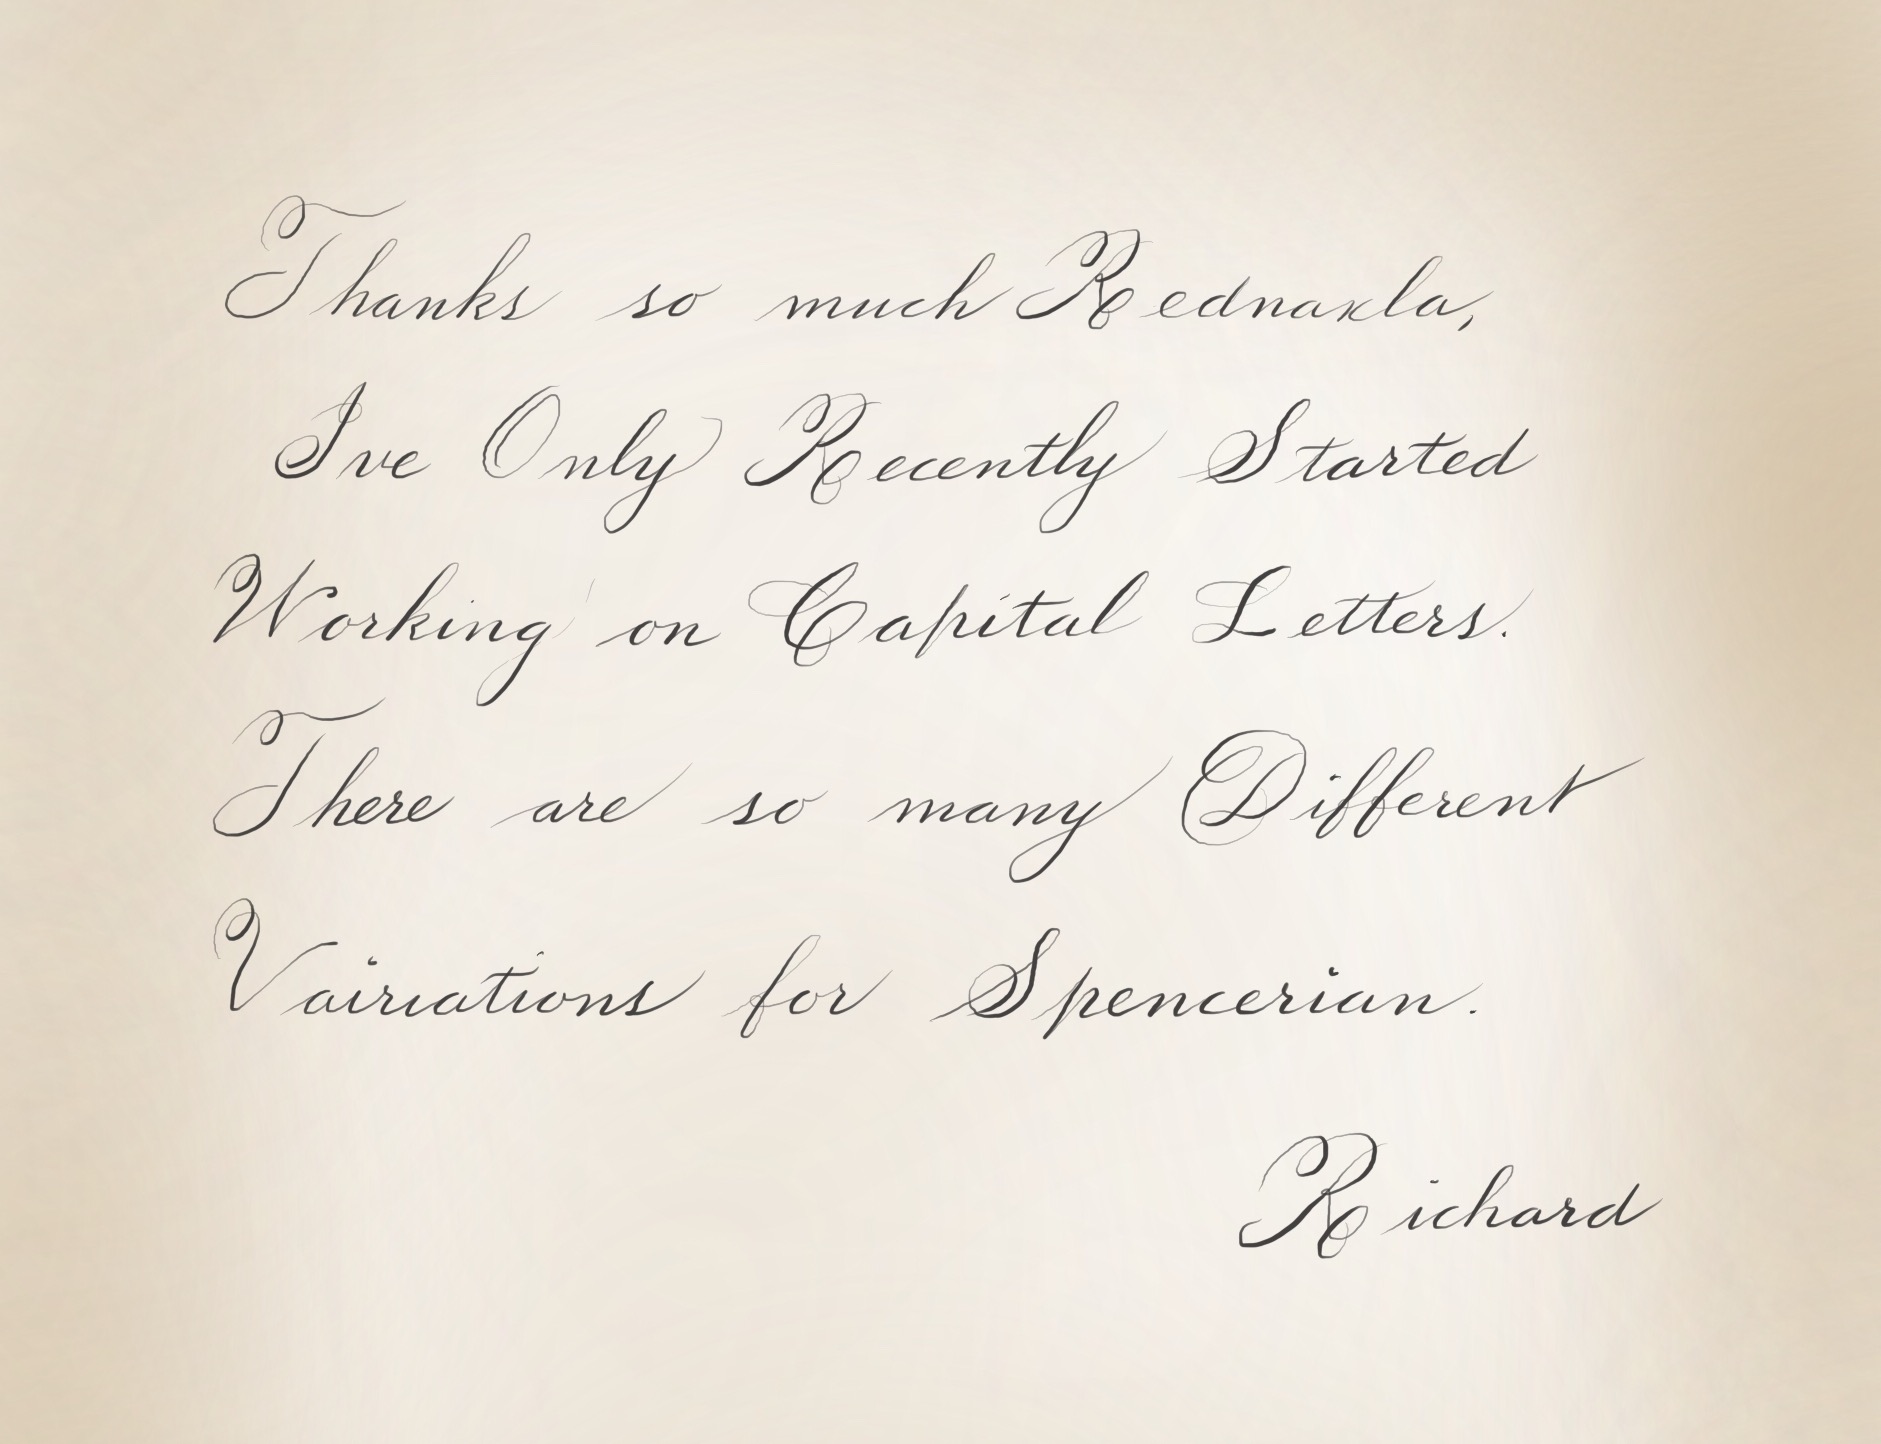 Thanks so much Rednaxla,
Ive Only Recently Started
Working on Capital Letters.
There are so many Different
Vairiations for Spencerian.
Richard